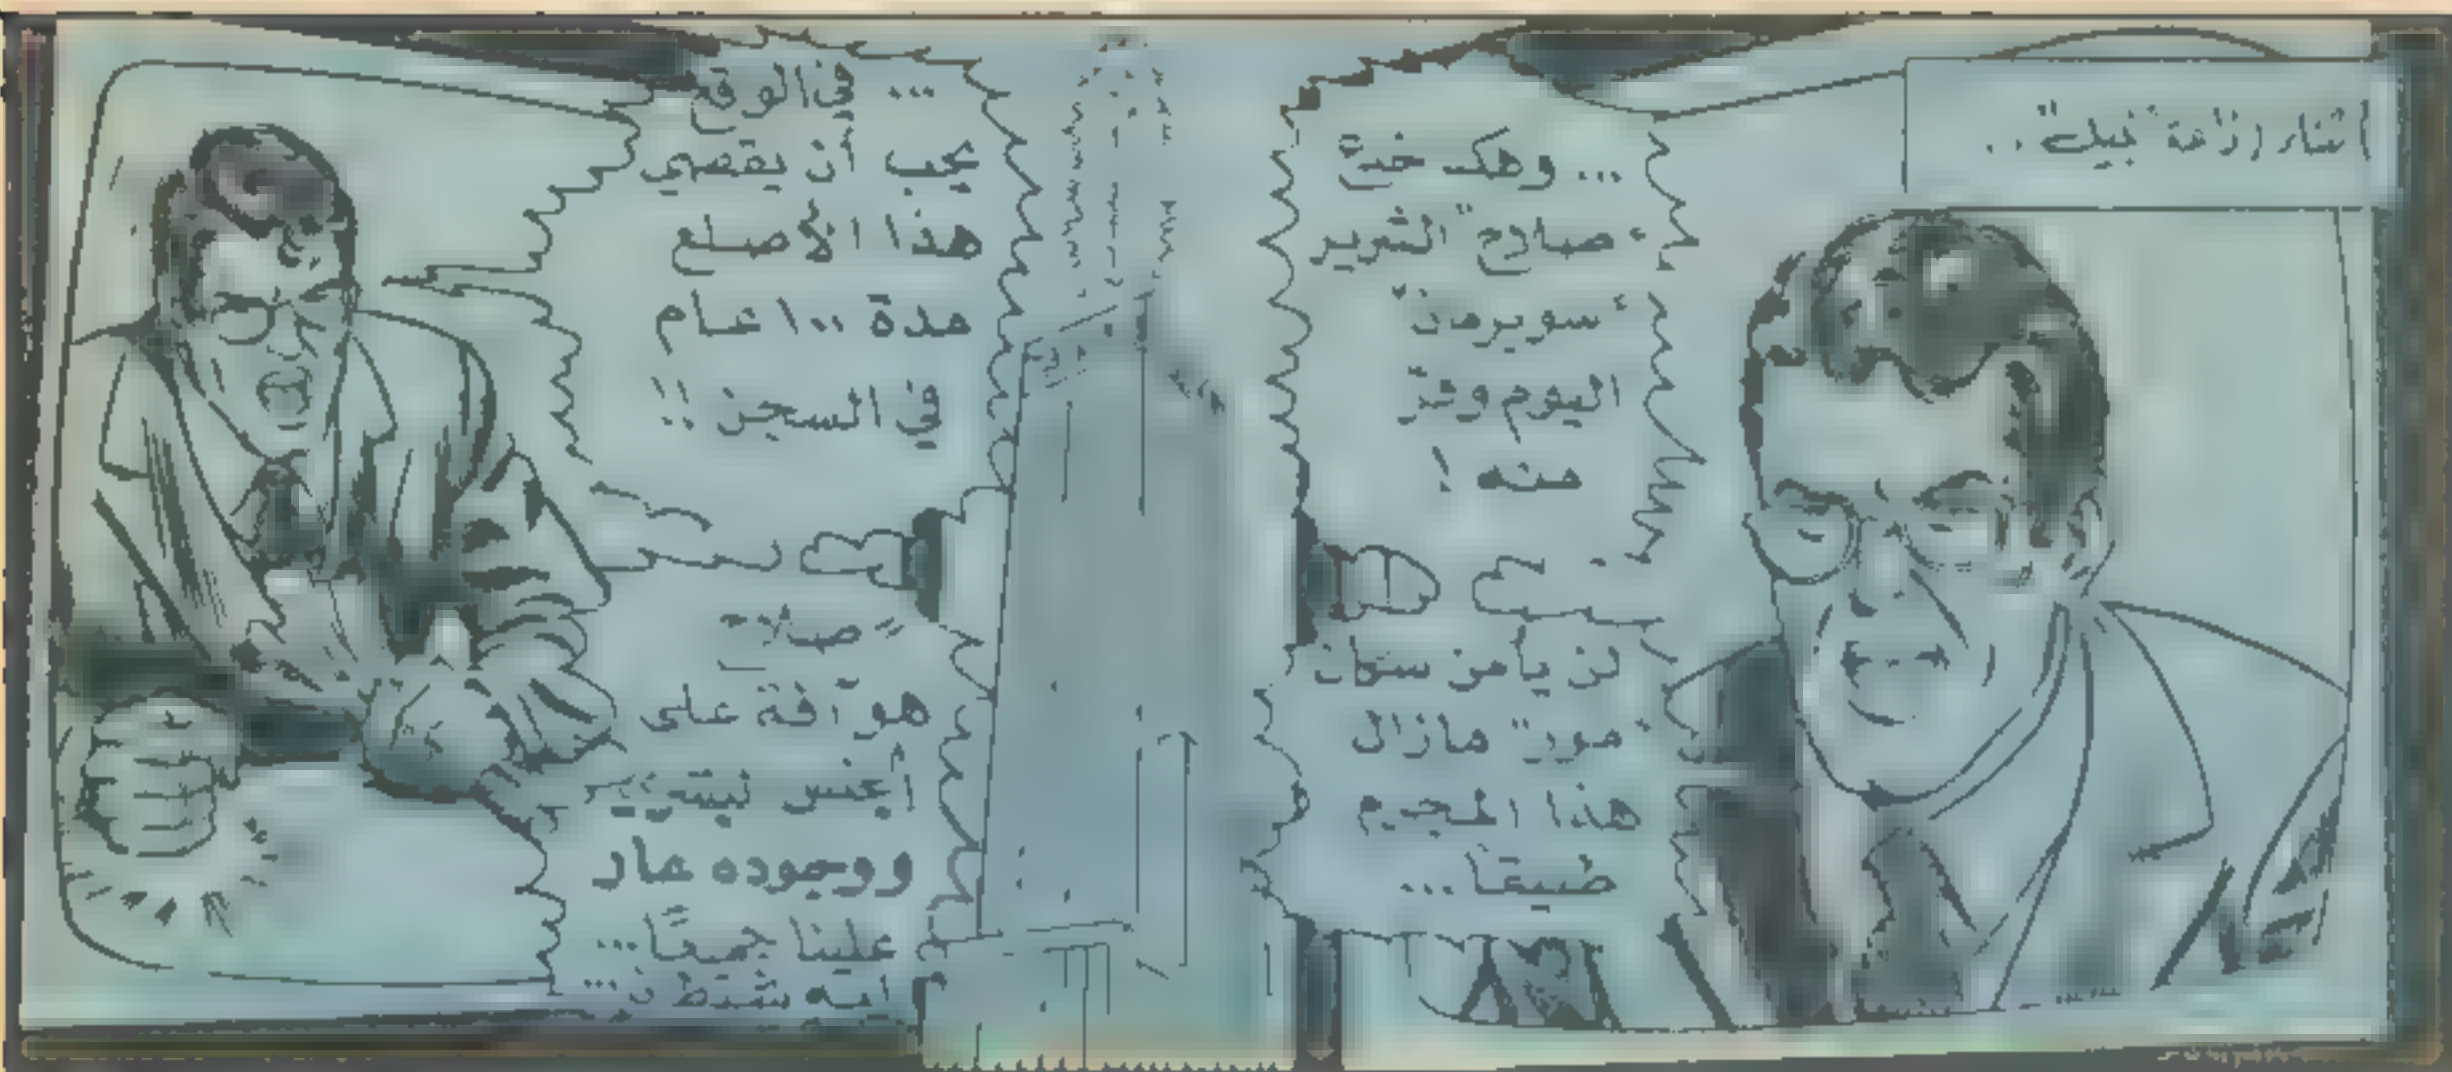 أثناء إذاعة "نبيل" ..
... وهكذا خدع
"صلاح" الشرير
"سوبرمان"
اليوم وفرّ
منه !
لن يأمن سكان
"مور" مازال
هذا المجرم
طليقاً ...
... في الواقع
يجب أن يقضي
هذا الأصلع
مدة ١٠٠ عام
في السجن !!
"صلاح"
هو آفة على
الجنس البشري
ووجوده عار
علينا جميعاً ...
إنه شيطان ...